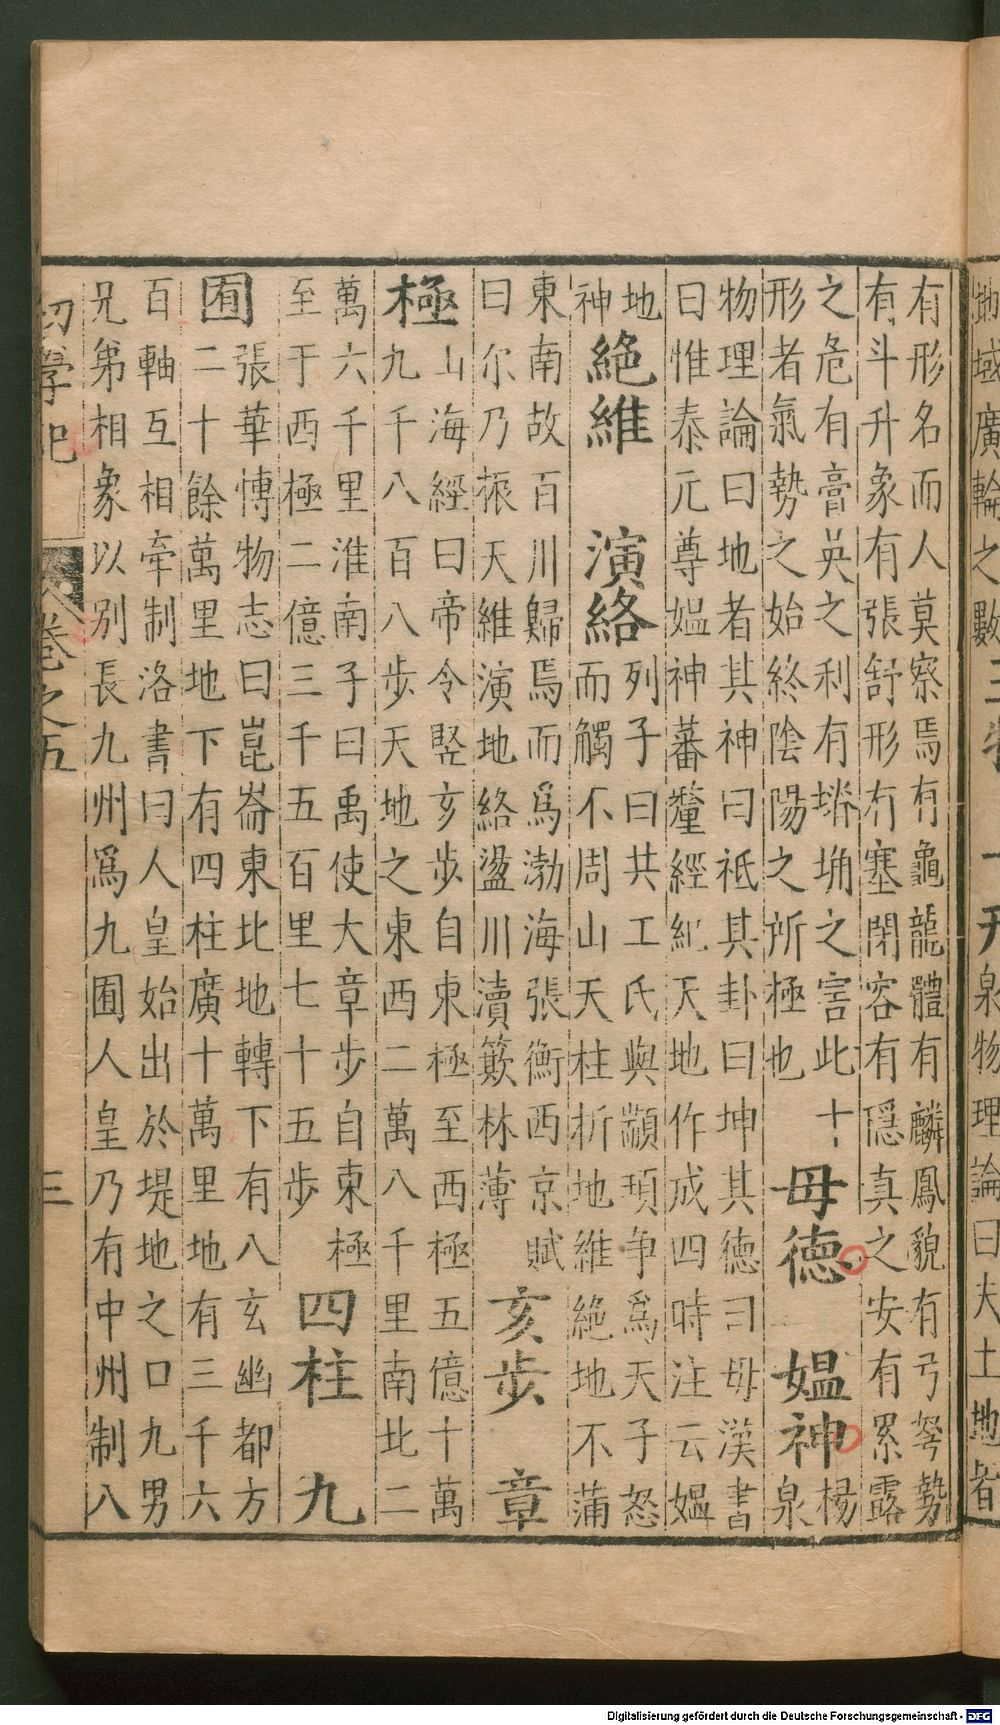 有形名而人莫察焉有龜龍體有麟鳳貌有弓弩勢
有斗升象有張舒形有塞閉容有隱真之安有累露
之危有膏英之利有塉埆之害此十
形者氣勢之始終陰陽之所極也
母德 媼神
楊
泉
物理論曰地者其神曰祇其卦曰坤其德曰母漢書
曰惟泰元尊媼神蕃釐經紀天地作成四時注云媼
神
地
絕維 演絡
列子曰共工氏與顓頊争爲天子怒
而觸不周山天柱折地維絕地不蒲
東南故百川歸焉而爲渤海張衡西京賦
曰尔乃振天維演地絡盪川瀆簸林薄
亥步 章
極
山海經曰帝令竪亥步自東極至西極五億十萬
九千八百八步天地之東西二萬八千里南北二
萬六千里淮南子曰禹使大章步自東極
至于西極二億三千五百里七十五步
四柱 九
囿
張華博物志曰崑崙東北地轉下有八玄幽都方
二十餘萬里地下有四柱廣十萬里地有三千六
百軸互相牽制洛書曰人皇始出於堤地之口九男
兄弟相象以别長九州爲九囿人皇乃有中州制八
初學記 卷之五 三
地域廣輪之數
泉物理論曰夫土地者
Digitalisierung gefördert durch die Deutsche Forschungsgemeinschaft - DFG